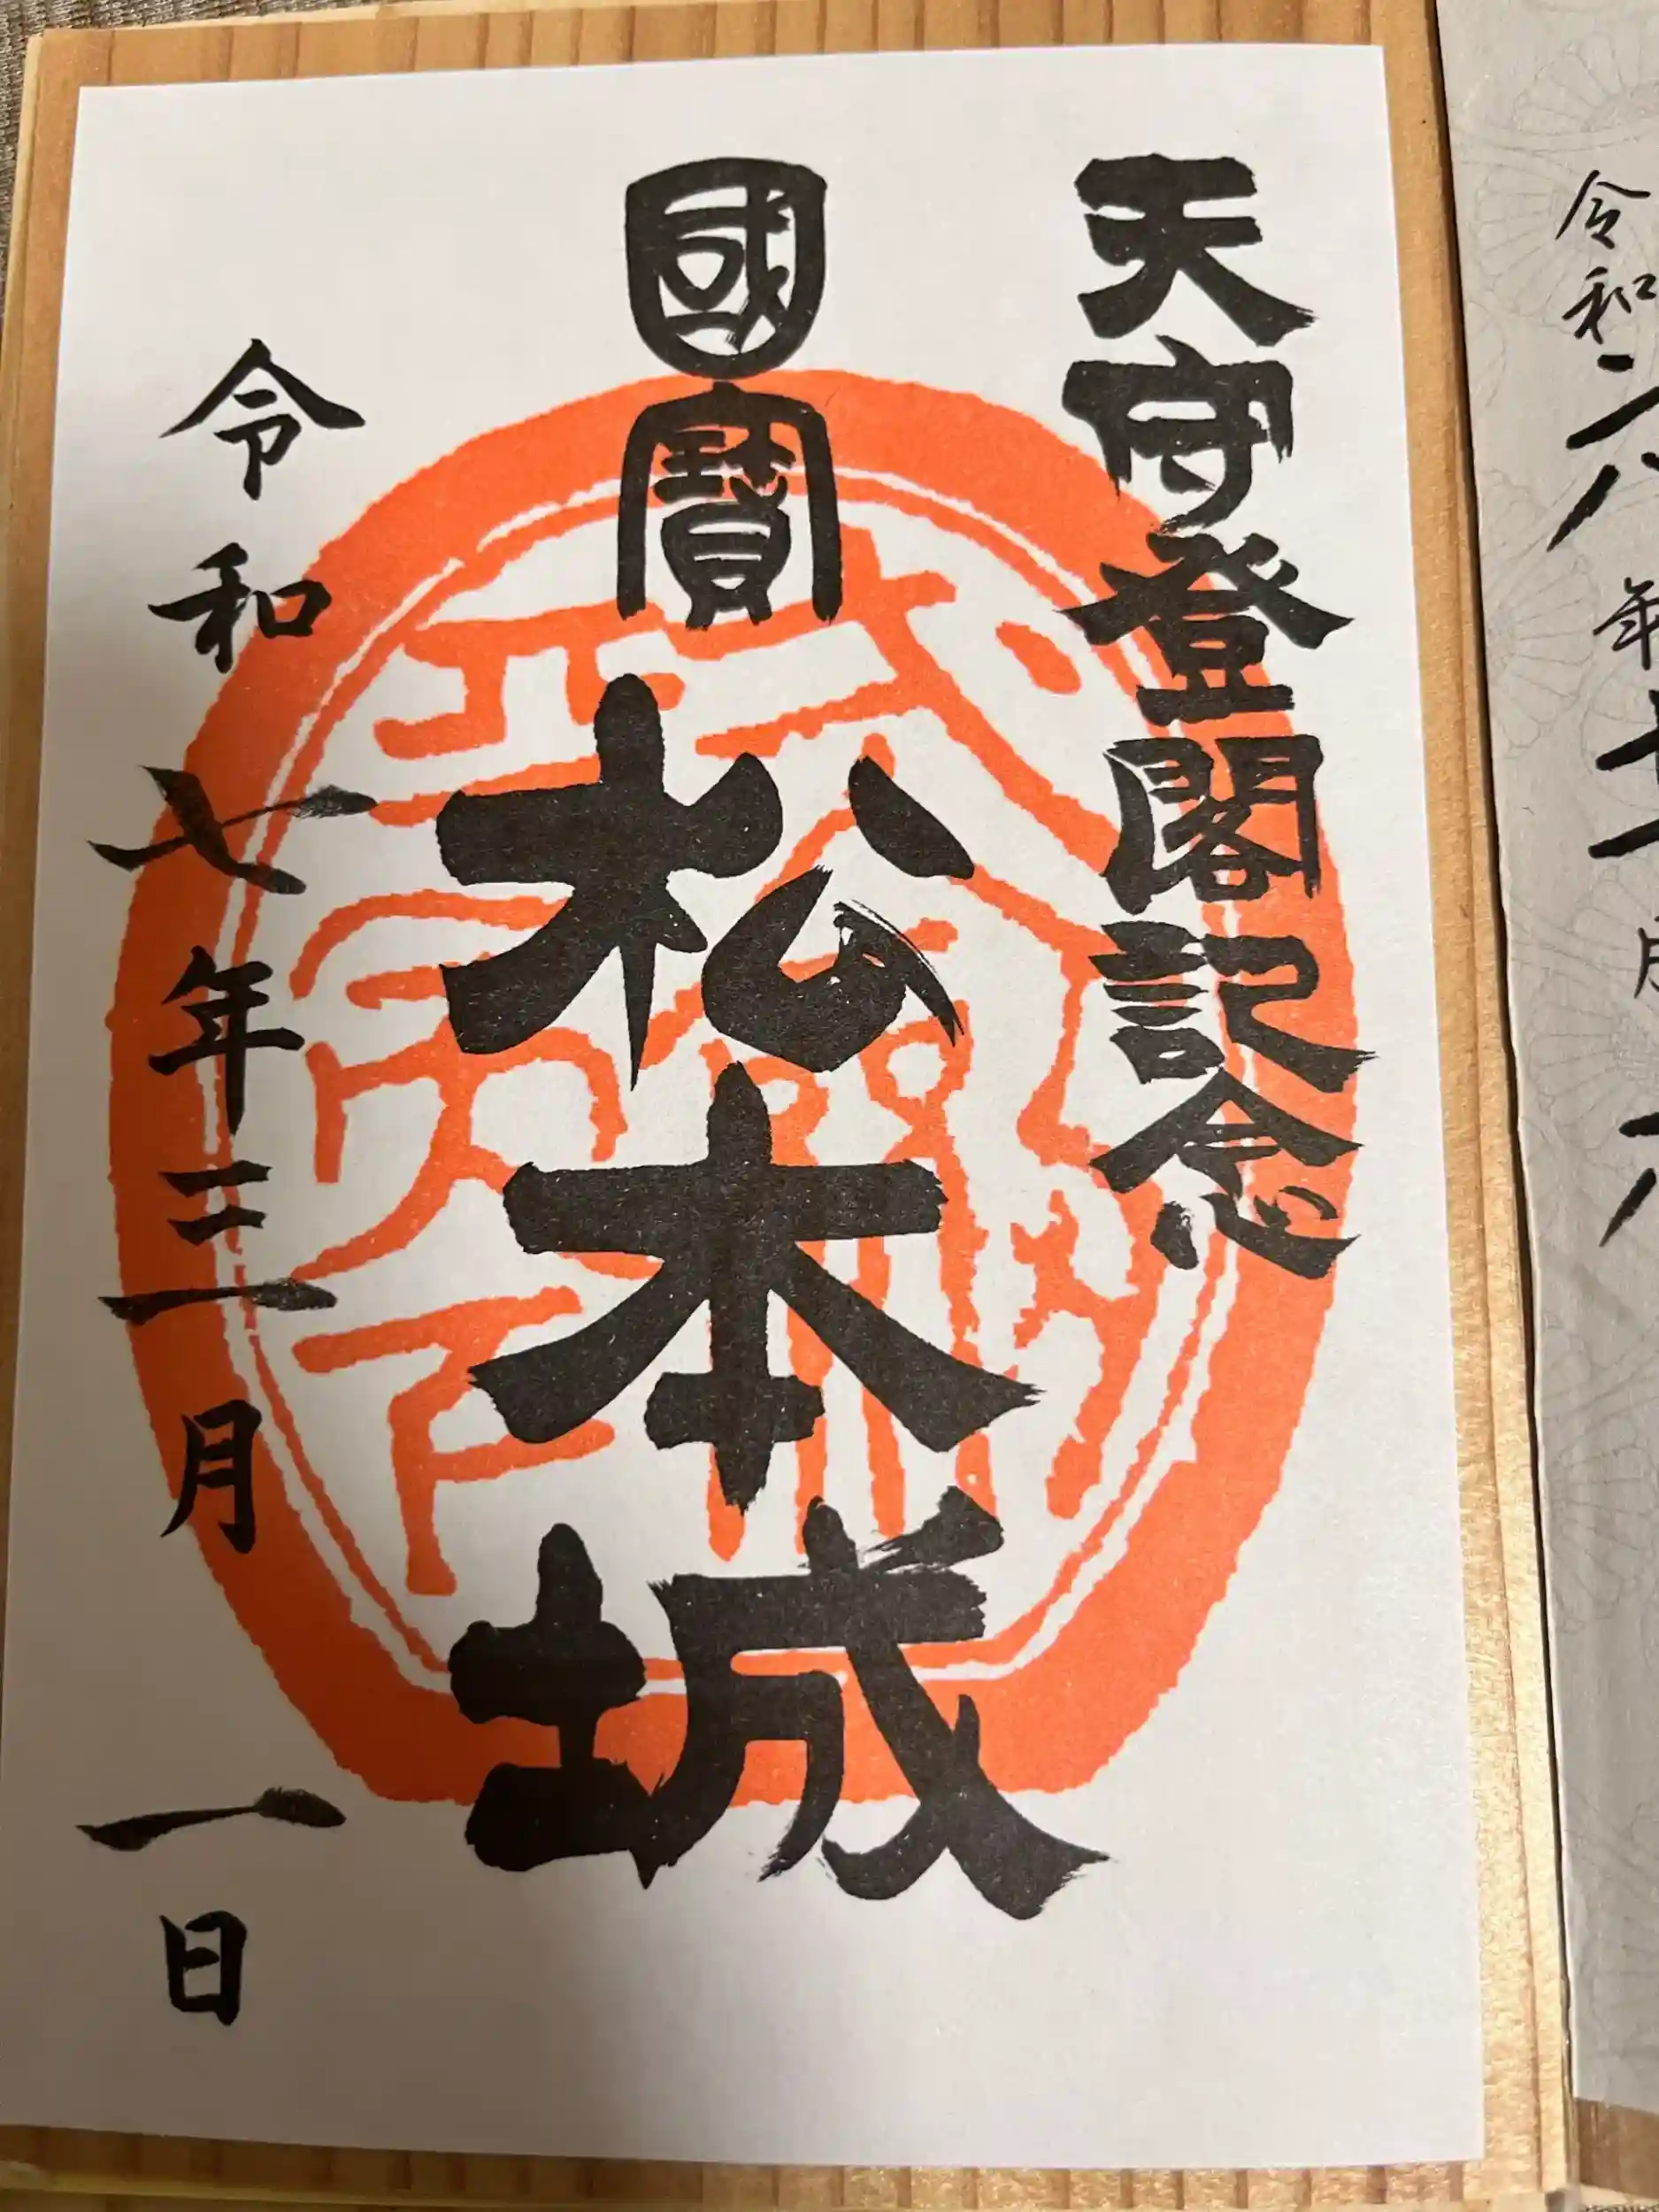 令和六年
天守登閣記念
國寶
松本城
令和七年三月一日